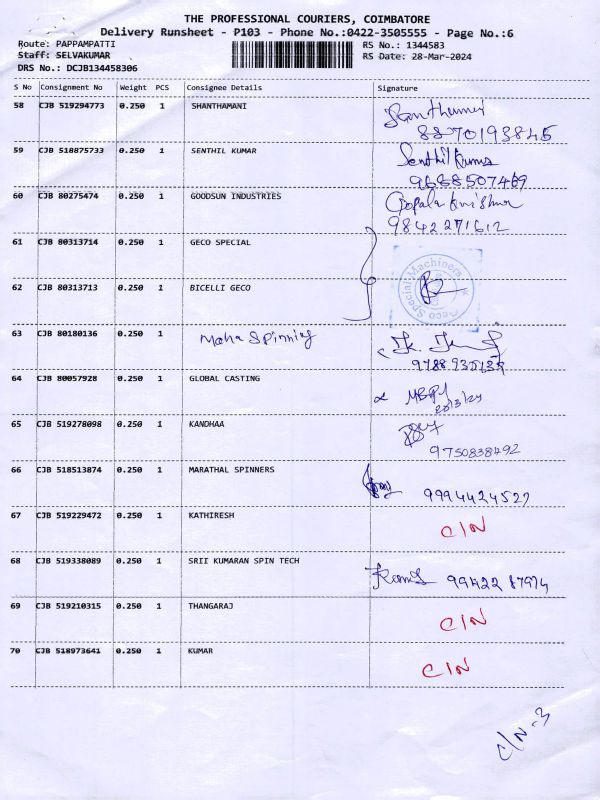 THE PROFESSIONAL COURIERS, COIMBATORE
Delivery Runsheet - P103 - Phone No.:0422-3505555 - Page No.:6
Route: PAPPAMPATTI RS No.: 1344583
Staff: SELVAKUMAR RS Date: 28-Mar-2024
DRS No.: DCJB134458306
S No Consignment No Weight PCS Consignee Details Signature
58 CJB 519294773 0.250 1 SHANTHAMANI
8870193845
59 CJB 518875733 0.250 1 SENTHIL KUMAR Senthil Kumar
9688507469
60 CJB 80275474 0.250 1 GOODSUN INDUSTRIES
9842271612
61 CJB 80313714 0.250 1 GECO SPECIAL
Geco Special Machiners
62 CJB 80313713 0.250 1 BICELLI GECO
63 CJB 80180136 0.250 1 Maha Spinning
64 CJB 80057928 0.250 1 GLOBAL CASTING
65 CJB 519278098 0.250 1 KANDHAA
9750838492
66 CJB 518513874 0.250 1 MARATHAL SPINNERS 9994424527
67 CJB 519229472 0.250 1 KATHIRESH C/N
68 CJB 519338089 0.250 1 SRII KUMARAN SPIN TECH 99422 87974
69 CJB 519210315 0.250 1 THANGARAJ C/N
70 CJB 518973641 0.250 1 KUMAR C/N
C/N-3